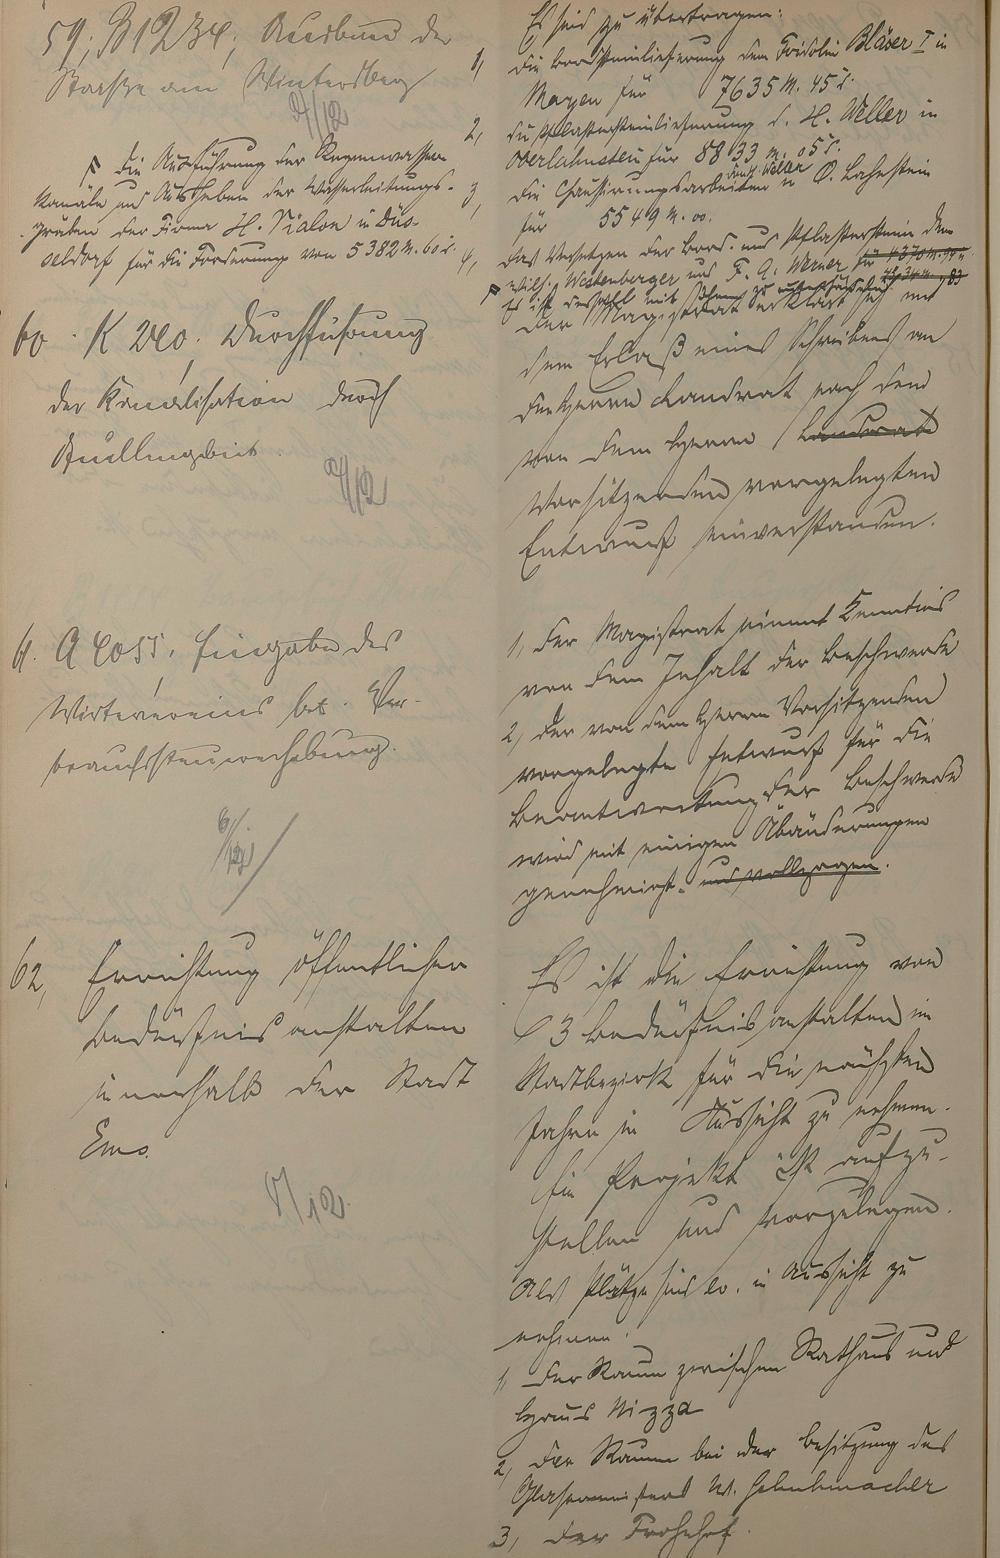 59, B 1234, Ausbau der
Straße am Wintersberg
9/12
F die Ausführung der Regenwasser
kanäle und Ausheben der Wasserleitungs-
gräben der Firma H. Nialon in Düs-
seldorf für die Forderung von 5382 M. 60 d.
60. K 240. Durchführung
der Kanalisation durch
Quellengebiet.
9/12
61. A 4055. Eingabe des
Wirtevereins bet. Ver-
brauchssteuererhebung.
6/12
62, Errichtung öffentlicher
Bedürfnisanstalten
innerhalb der Stadt
Ems.
9/12
Es sind zu übertragen:
1, die Bordsteinlieferung dem Fridolin Bläser I in
Mayen für 7635 M. 45 d.
2, die Pflastersteinlieferung d. H. Weller in
Oberlahnstein für 8833 M. 05 d.
3, die Chaussirungsarbeiten dem Weller in O. Lahnstein
für 5549 M. 00.
4, das Versetzen der Bord- und Pflastersteine dem
Wilh. Westenberger und F. A. Werner für 4370 M.
Der Magistrat erklärt sich mit
dem Erlaß eines Schreibens an
den Herrn Landrat nach dem
von dem Herrn Landrat
Vorsitzenden vorgelegten
Entwurf einverstanden.
1, Der Magistrat nimmt Kenntnis
von dem Inhalt der Beschwerde
2, der von dem Herrn Vorsitzenden
vorgelegte Entwurf für die
Beantwortung der Beschwerde
wird mit einigen Abänderungen
genehmigt. und vollzogen.
Es ist die Errichtung von
3 Bedürfnisanstalten im
Stadtbezirk für die nächsten
Jahre in Aussicht zu nehmen.
Ein Projekt ist aufzu-
stellen und vorzulegen.
Als Plätze sind in Aussicht zu
nehmen:
1, Der Raum zwischen Rathaus und
Haus Nizza
2, Der Raum bei der Besitzung des
Glasermeisters W.
3, Der Frohnhof.